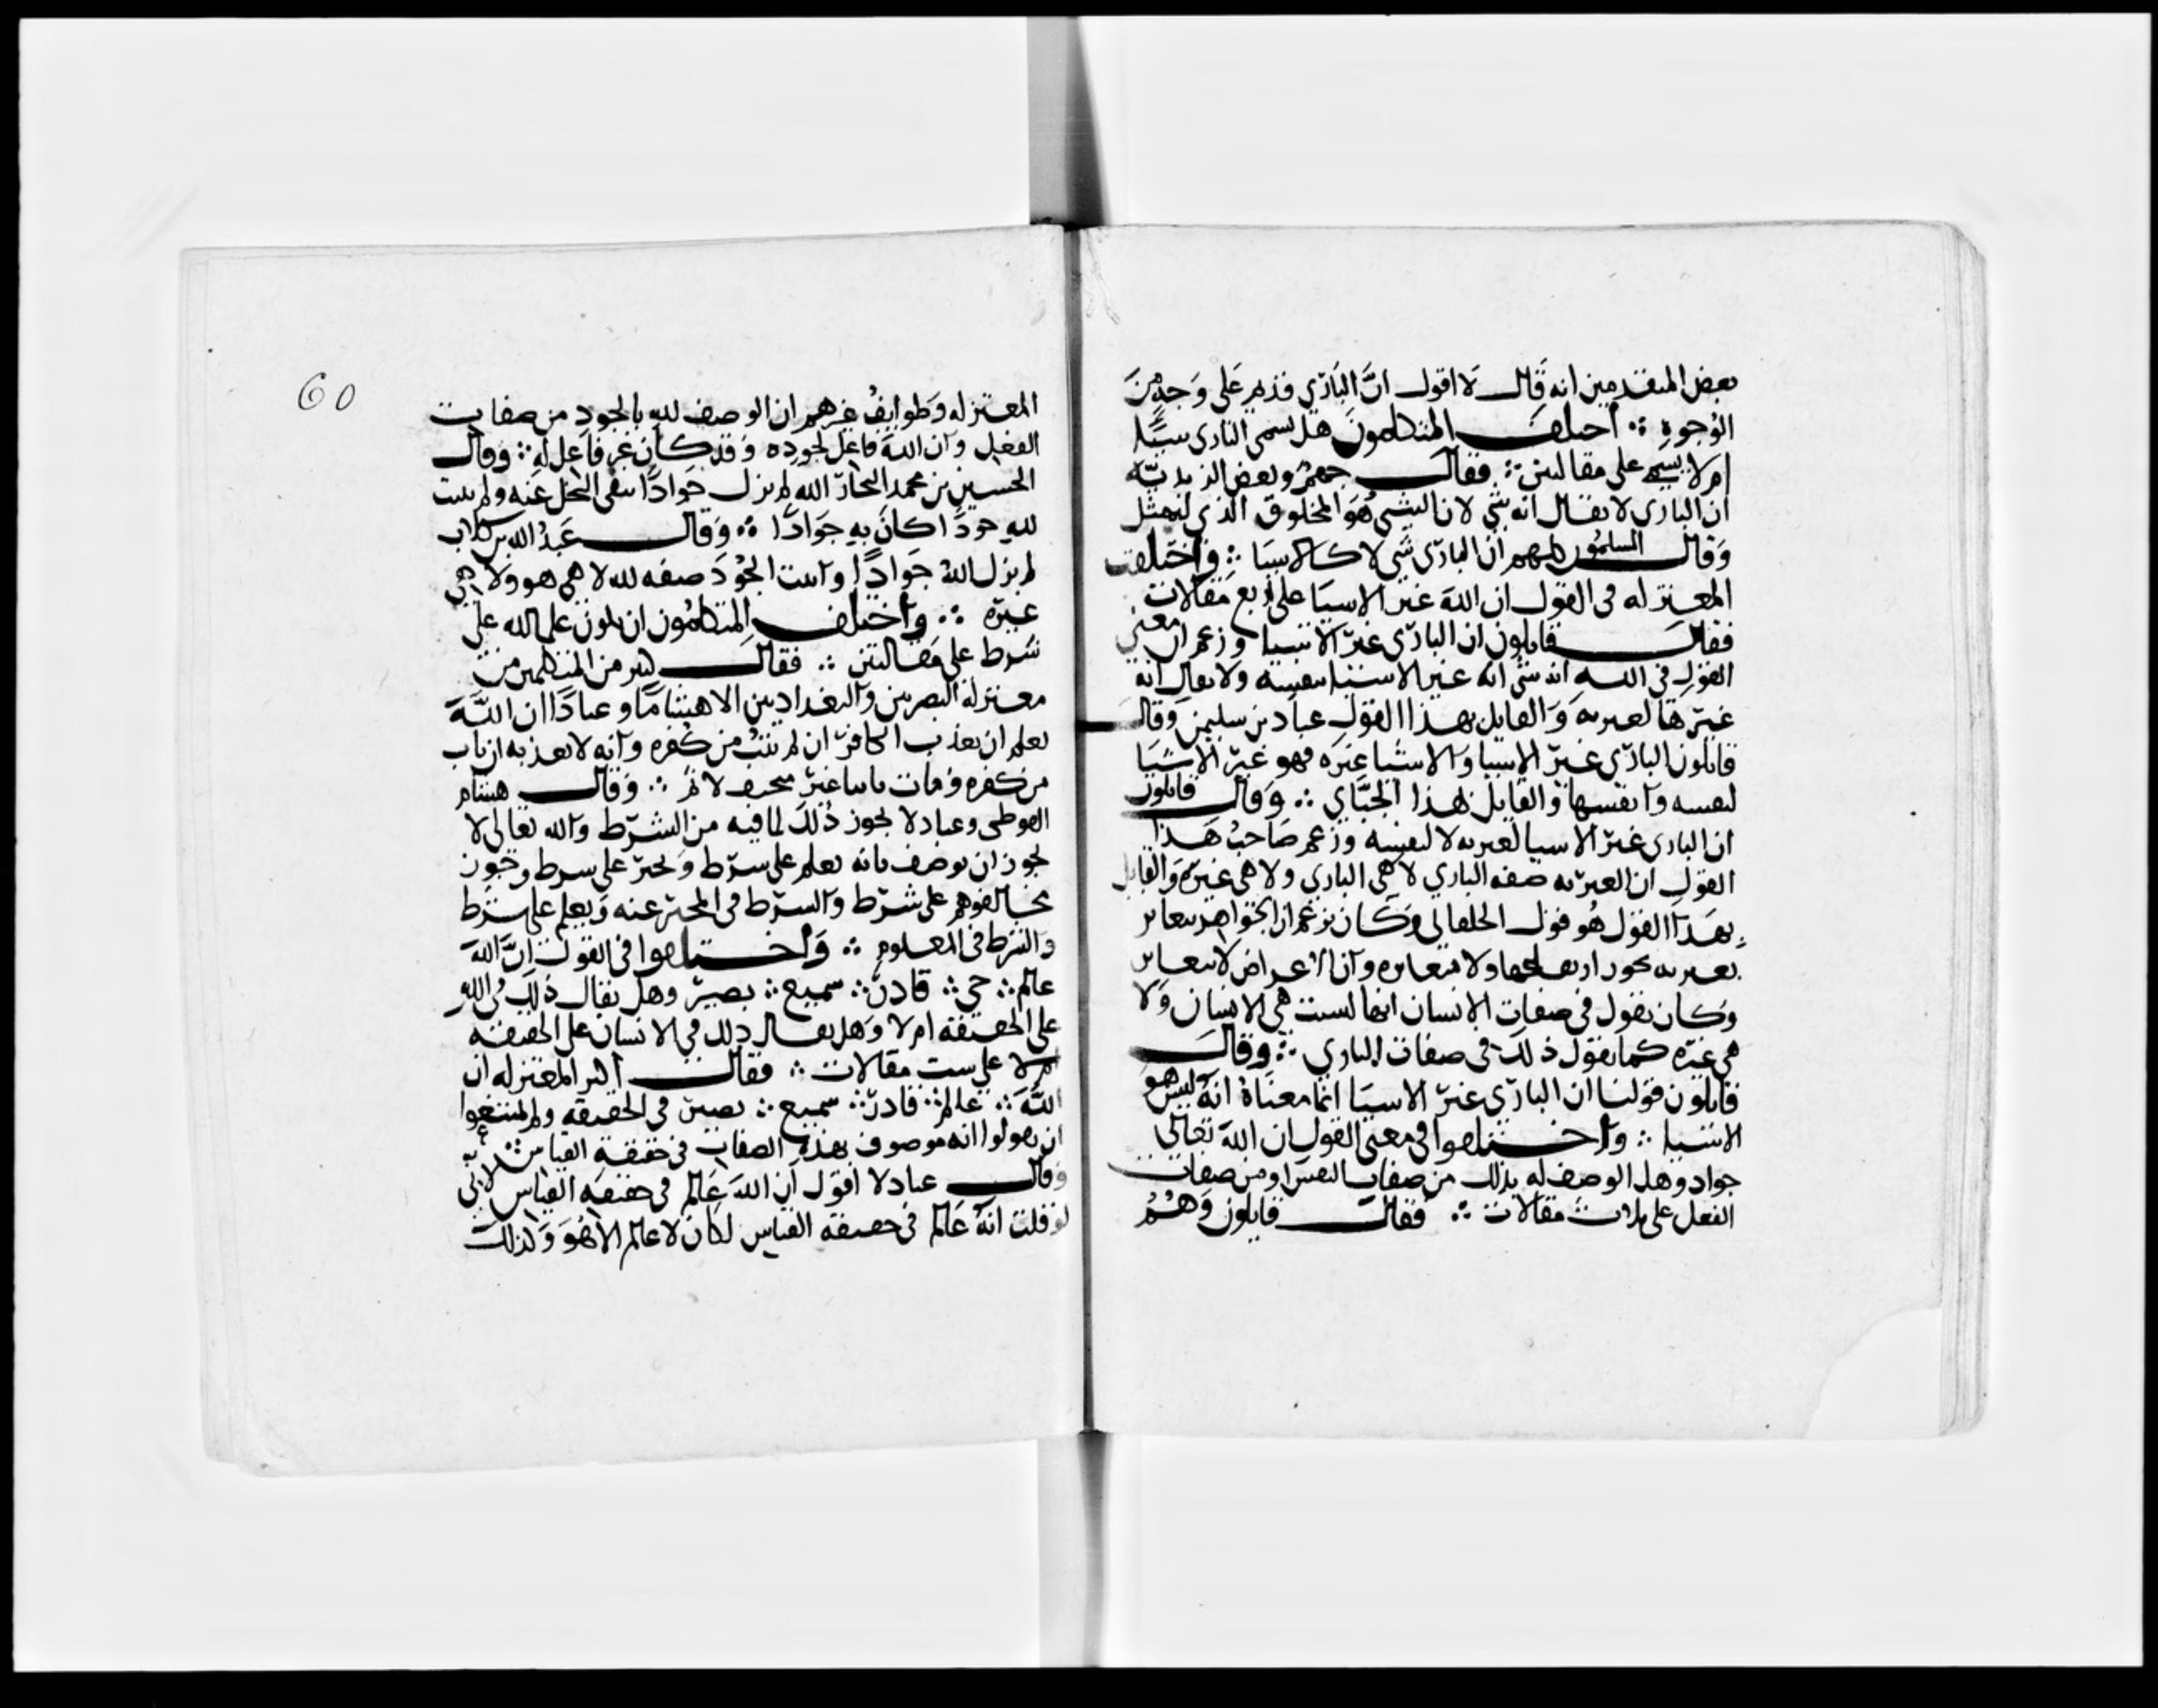 بعض المتقدمين انه قال لا اقول ان البارى قديم على وجه من
الوجوه ∴ اختلف المتكلمون هل يسمى البارى شيئا
ام لا يسمى على مقالتين ∴ فقال جهم وبعض الزيدية
ان البارى لا يقال انه شى لان الشى هو المخلوق الذى له مثل
وقال المسلمون كلهم ان البارى شى لا كالاشيا ∴ واختلفت
المعتزله فى القول ان الله غير الاشيا على اربع مقالات
فقال قايلون ان البارى غير الاشيا وزعم ان معنى
القول فى الله انه شى انه غير الاشيا بنفسه ولا يقال انه
غيرها لغيريه والقايل بهذا القول عباد بن سليمن وقال
قايلون البارى غير الاشيا والاشيا غيره فهو غير الاشيا
لنفسه وانفسها والقايل بهذا الجباي ∴ وقال قايلون
ان البارى غير الاشيا لغيريه لا لنفسه وزعم صاحب هذا
القول ان الغيريه صفه البارى لا هى البارى ولا هى غيره والقايل
بهذا القول هو قول الحلقانى وكان يزعم ان الجواهر تتغاير
بغيريه يجوز ارتفاعها ولا تتغاير وان الاعراض لا تتغاير
وكان يقول فى صفات الانسان انها ليست هى الانسان ولا
هى غيره كما يقول ذلك فى صفات البارى ∴ وقال
قايلون قولنا ان البارى غير الاشيا انما معناه انه ليس هو
الاشيا ∴ واختلفوا فى معنى القول ان الله تعالى
جواد وهل الوصف له بذلك من صفات النفس او من صفات
الفعل على ثلاث مقالات ∴ فقال قايلون وهم
60
المعتزله وطوايف غيرهم ان الوصف لله بالجود من صفات
الفعل وان الله فاعل لجوده وقد كان غير فاعل له ∴ وقال
الحسين بن محمد النجار الله لم يزل جوادا بنفى البخل عنه ولم يثبت
لله جودا كان به جوادا ∴ وقال عبد الله بن كلاب
لم يزل الله جوادا واثبت الجود صفه لله لا هى هو ولا هى
غيره ∴ واختلف المتكلمون ان يكون علم الله على
شرط على مقالتين ∴ فقال كثير من المتكلمين من
معتزلة البصريين والبغداديين الا هشاما وعبادا ان الله
يعلم ان يعذب الكافر ان لم يتب من كفره وانه لا يعذبه ان تاب
من كفره ومات تايبا غير متجنف لاثم ∴ وقال هشام
الفوطى وعباد لا يجوز ذلك لما فيه من الشرط والله تعالى لا
يجوز ان يوصف بانه يعلم على شرط ويخبر على شرط وجوز
مخالفوهم على شرط والشرط فى المخبر عنه ويعلم على شرط
والشرط فى المعلوم ∴ واختلفوا فى القول ان الله
عالم ∴ حى ∴ قادر ∴ سميع ∴ بصير وهل يقال ذلك فى الله
على الحقيقه ام لا وهل يقال ذلك فى الانسان على الحقيقه
ام لا على ست مقالات ∴ فقال اكثر المعتزله ان
الله ∴ عالم ∴ قادر ∴ سميع ∴ بصير فى الحقيقه ولم يمتنعوا
ان يقولوا انه موصوف بهذه الصفات فى حقيقة القياس ∴
وقال عباد لا اقول ان الله عالم فى حقيقه القياس لانى
لو قلت انه عالم فى حقيقه القياس لكان لا عالم الا هو وكذلك